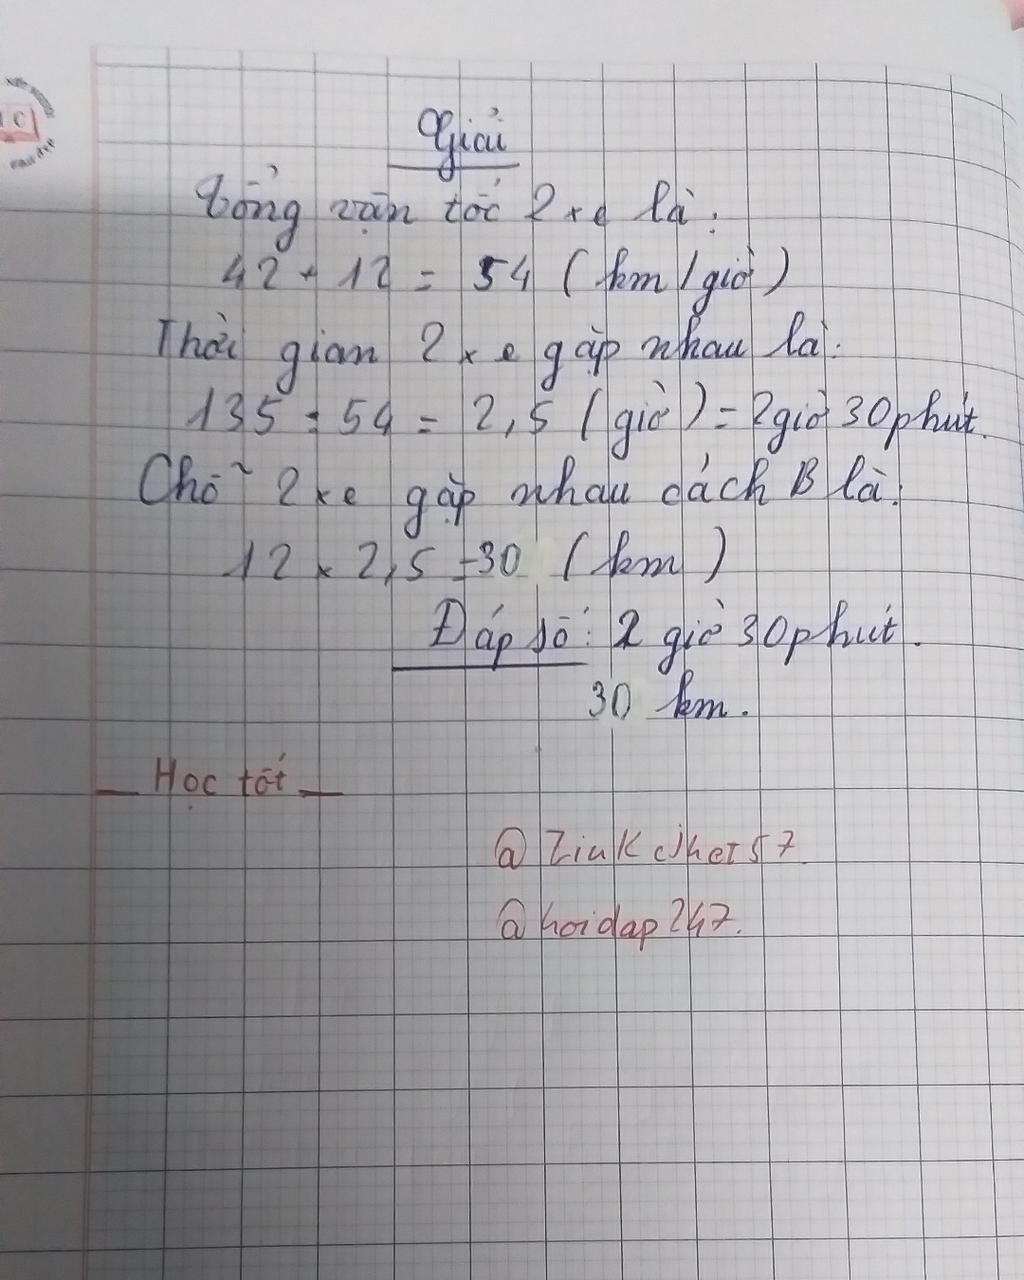 Giải
Tổng vận tốc 2 xe là:
42 + 12 = 54 (km/giờ)
Thời gian 2 xe gặp nhau là:
135 : 54 = 2,5 (giờ) = 2giờ 30phút.
Chỗ 2 xe gặp nhau cách B là:
12 x 2,5 = 30 (km)
Đáp số: 2 giờ 30phút.
30 km.
_ Học tốt _
@hoidap247.